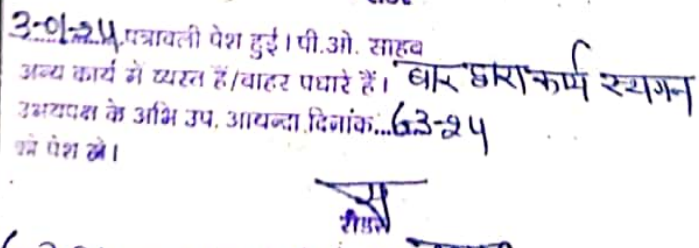 3-01-24 पत्रावली पेश हुई। पी.ओ. साहब
अन्य कार्य में व्यस्त हैं/बाहर पधारे हैं। बार द्वारा कार्य स्थगन
उभयपक्ष के अभि उप. आयन्दा दिनांक...6-3-24
को पेश हो।
रीडर